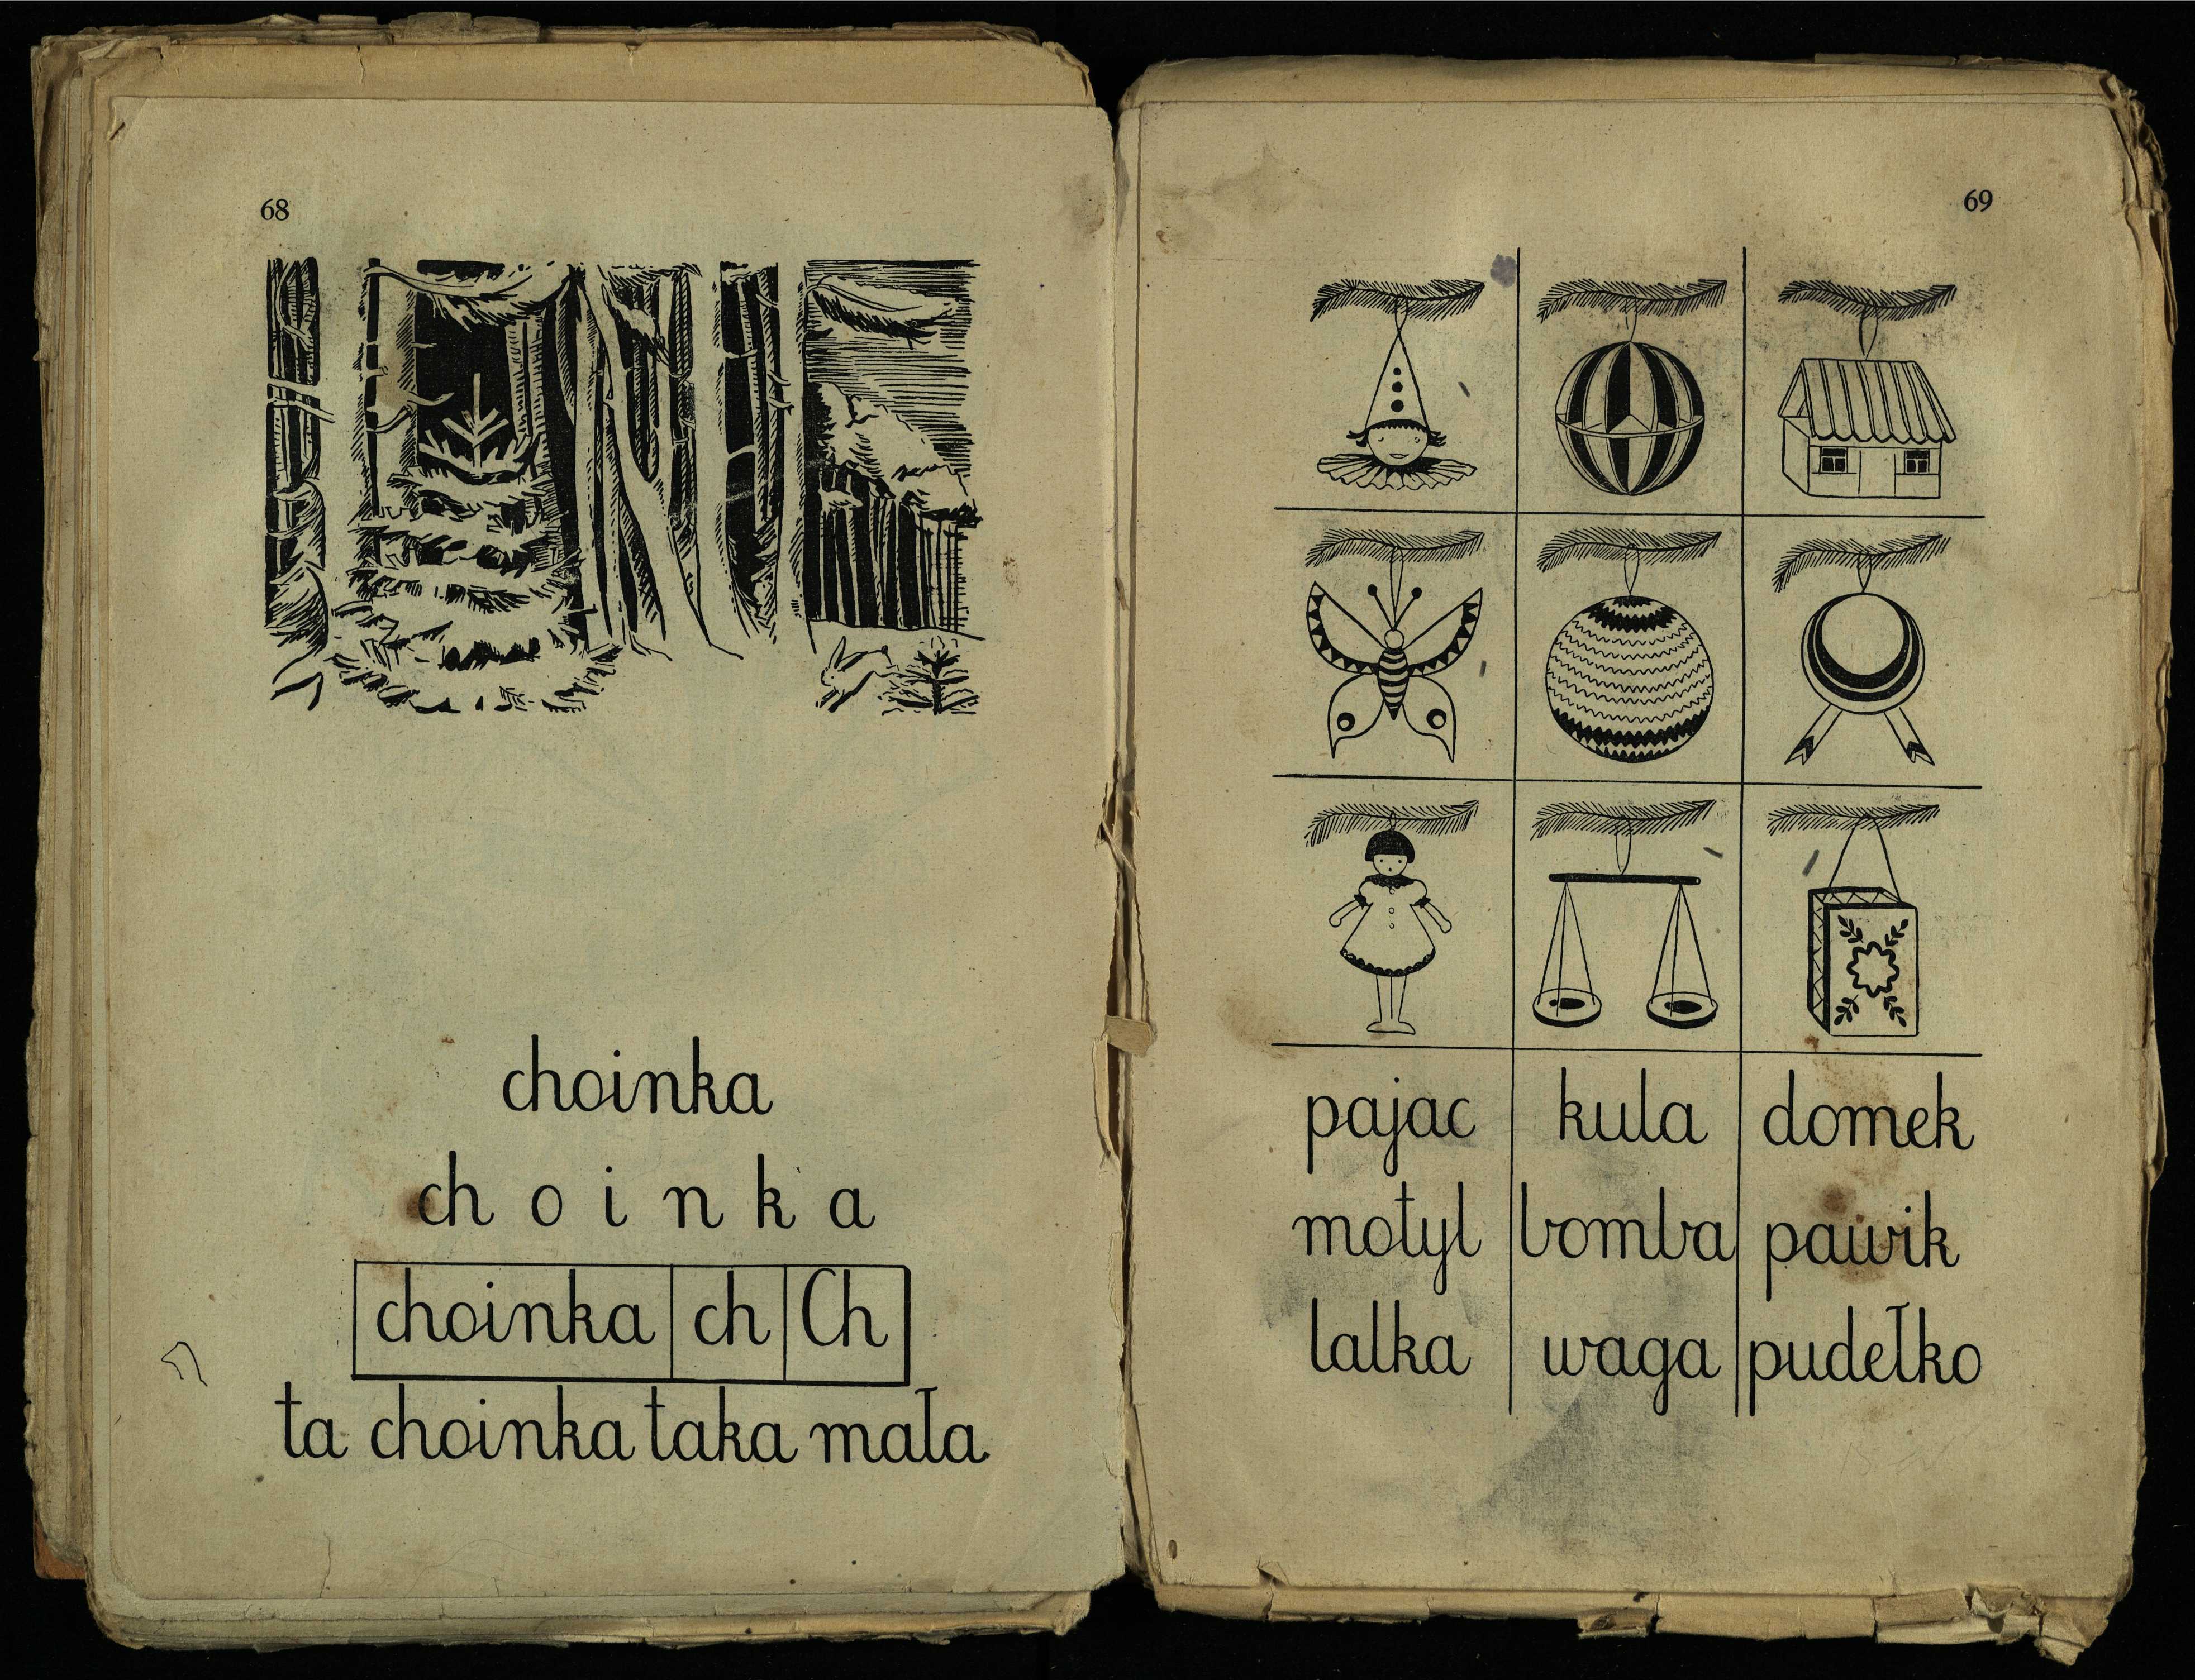 68
choinka
ch o i n k a
choinka ch Ch
ta choinka taka mała
69
pajac kula domek
motyl bomba pawik
lalka waga pudełko